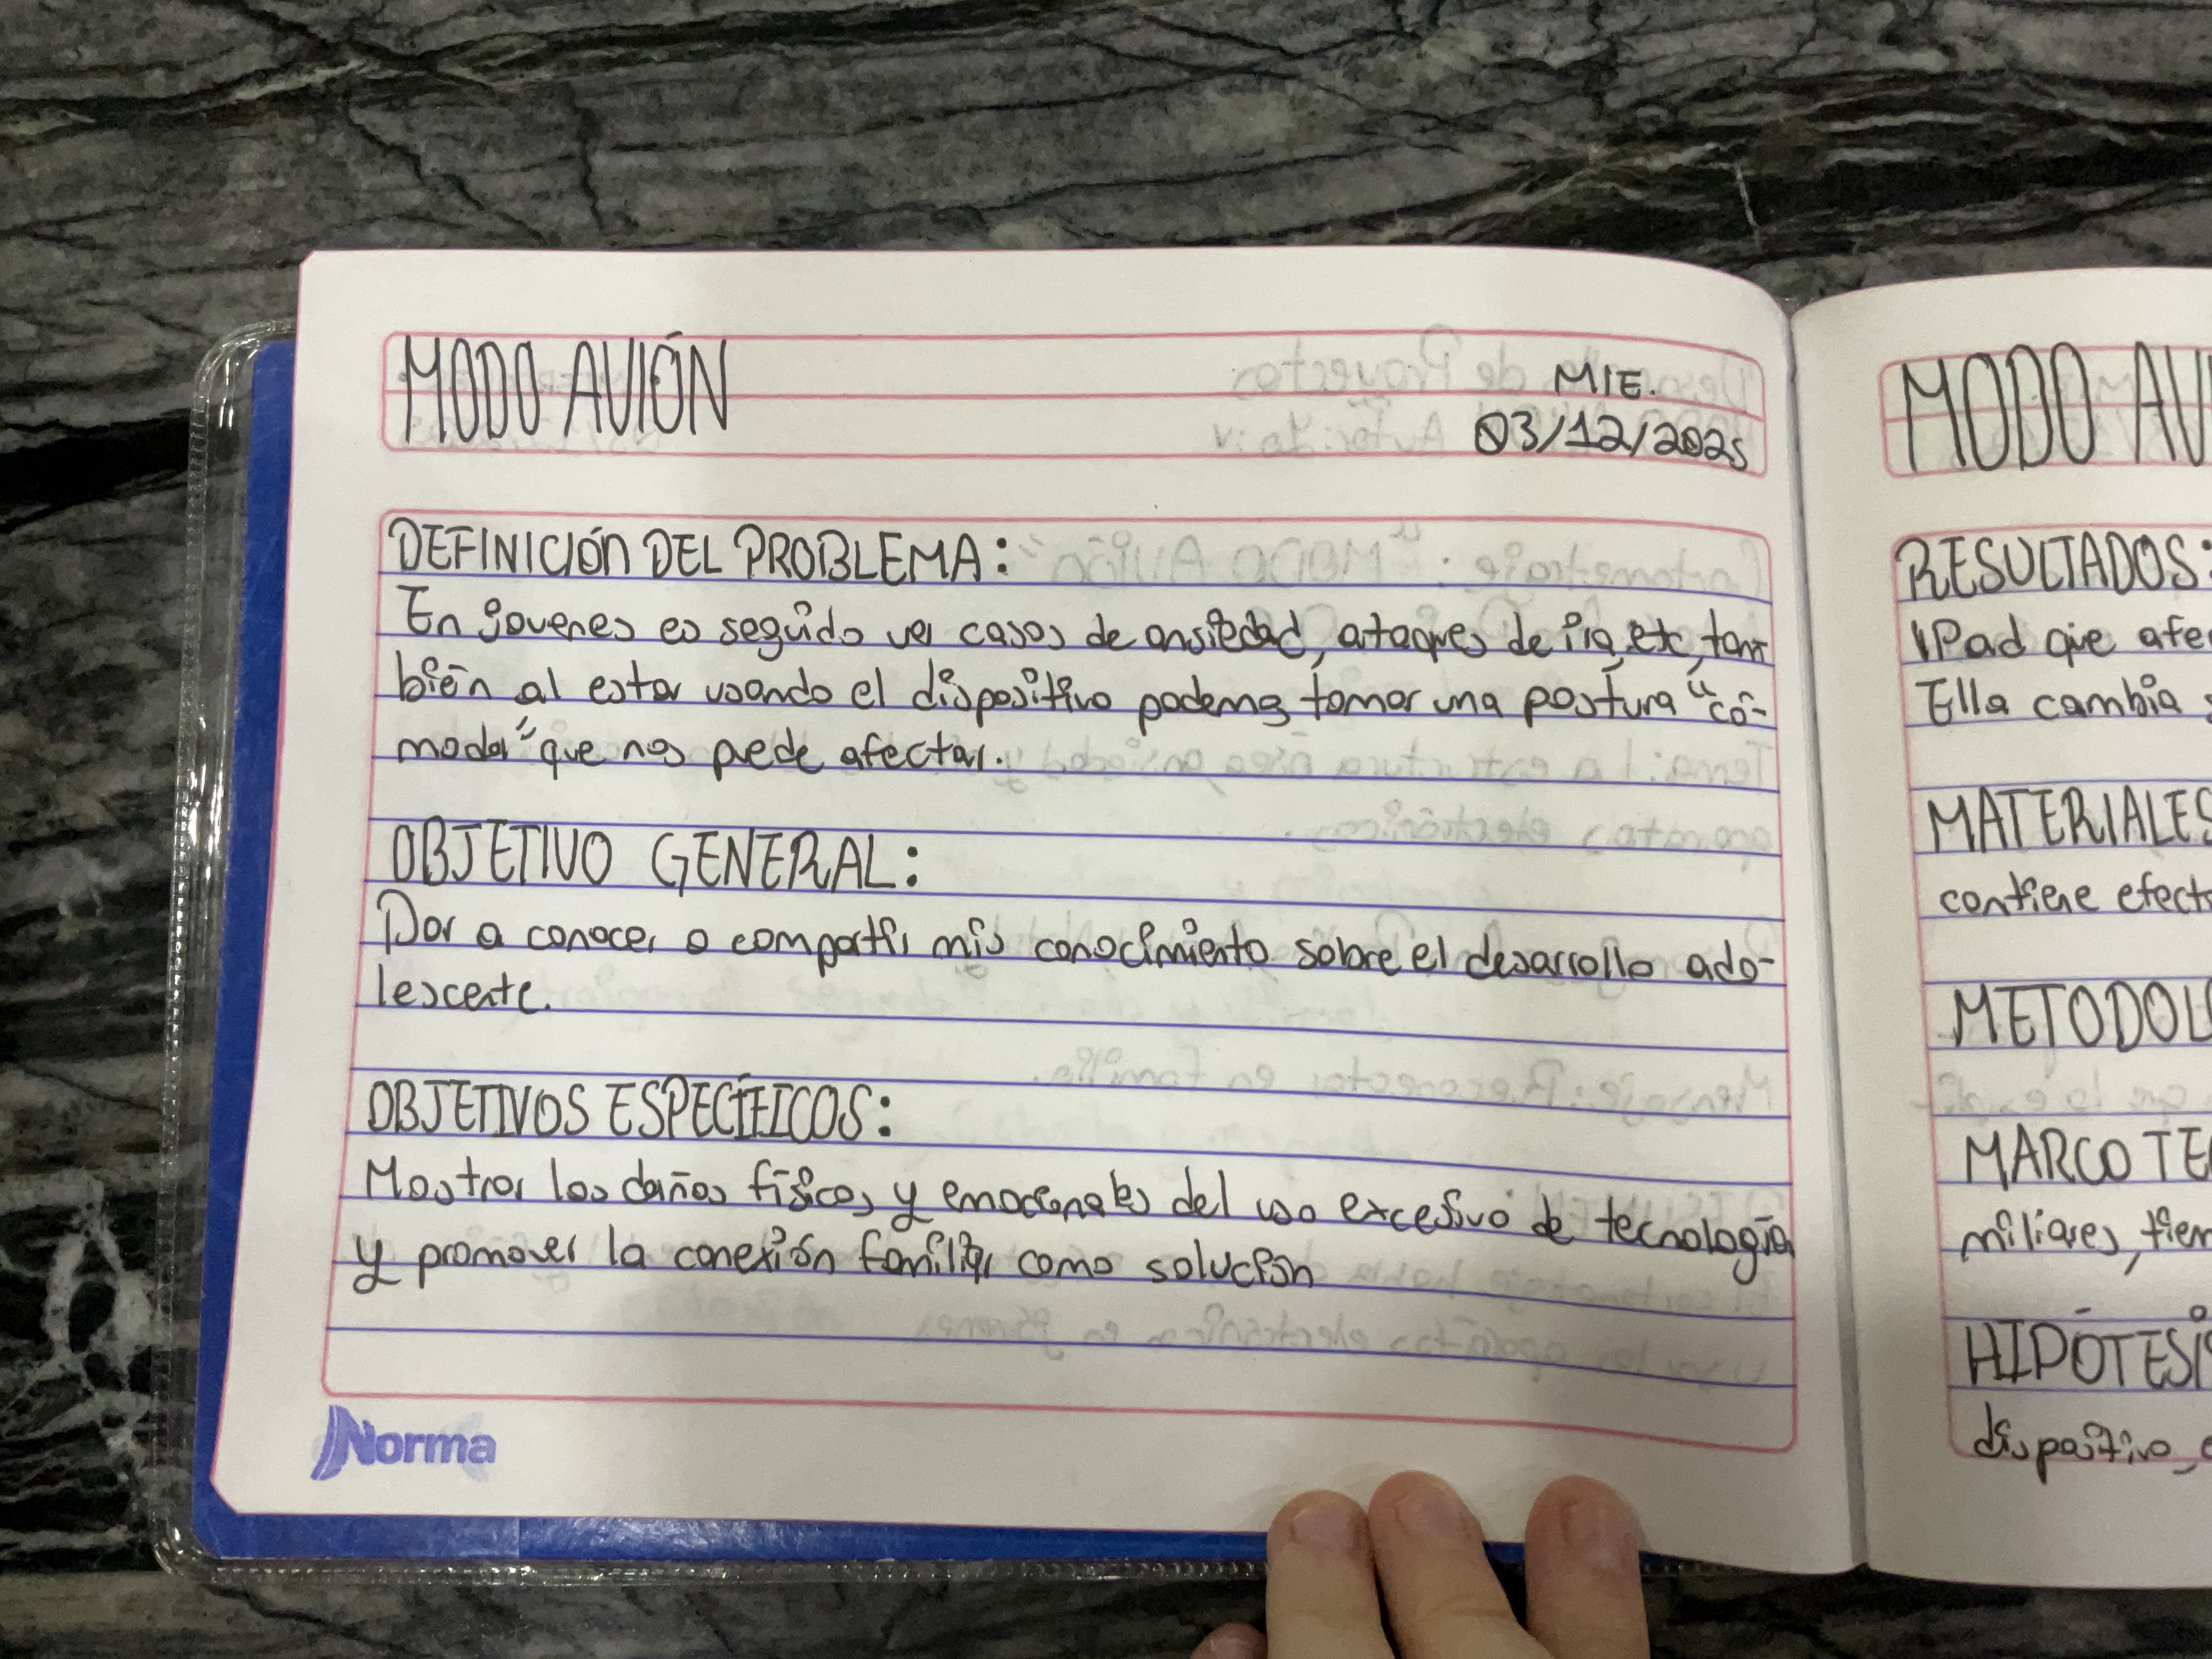 MODO AVIÓN
MIE.
03/12/2025
DEFINICIÓN DEL PROBLEMA:
En jovenes es seguido ver casos de ansiedad, ataques de ira, etc, tam
bién al estar usando el dispositivo podemos tomar una postura "có-
moda" que nos puede afectar.
OBJETIVO GENERAL:
Dar a conocer o compartir mis conocimiento sobre el desarrollo ado-
lescente.
OBJETIVOS ESPECÍFICOS:
Mostrar los daños físicos y emocionales del uso excesivo de tecnología
y promover la conexión familiar como solución
Norma
MODO AVI
RESULTADOS:
IPad que afe
Ella cambia
MATERIALES
contiene efect
METODOL
MARCO TE
miliares, tiem
HIPÓTESIS
dispositivo, e